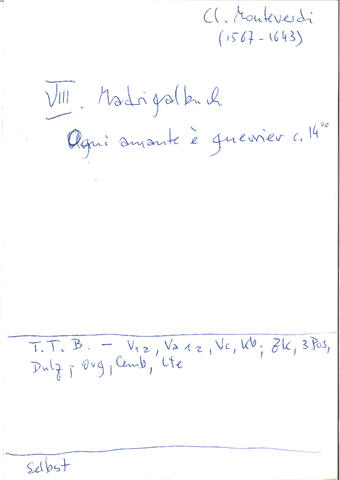 Cl. Monteverdi
(1567-1643)
VIII. Madrigalbuch
Ogni amante è guerrier c. 14°°
T. T. B. — V 1 2, Va 1 2, Vc, Kb; Zk, 3 Pos,
Dulz; Org, Cemb, Lte
Selbst